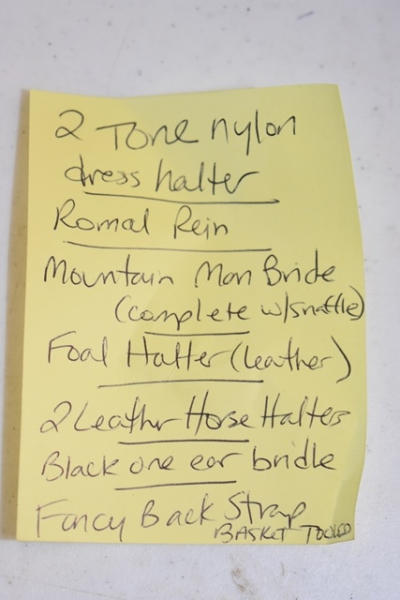 2 Tone nylon
dress halter
Romal Rein
Mountain Man Bride
(complete w/snaffle)
Foal Halter (leather)
2 Leather Horse Halters
Black one ear bridle
Fancy Back Strap
BASKET TOOLED